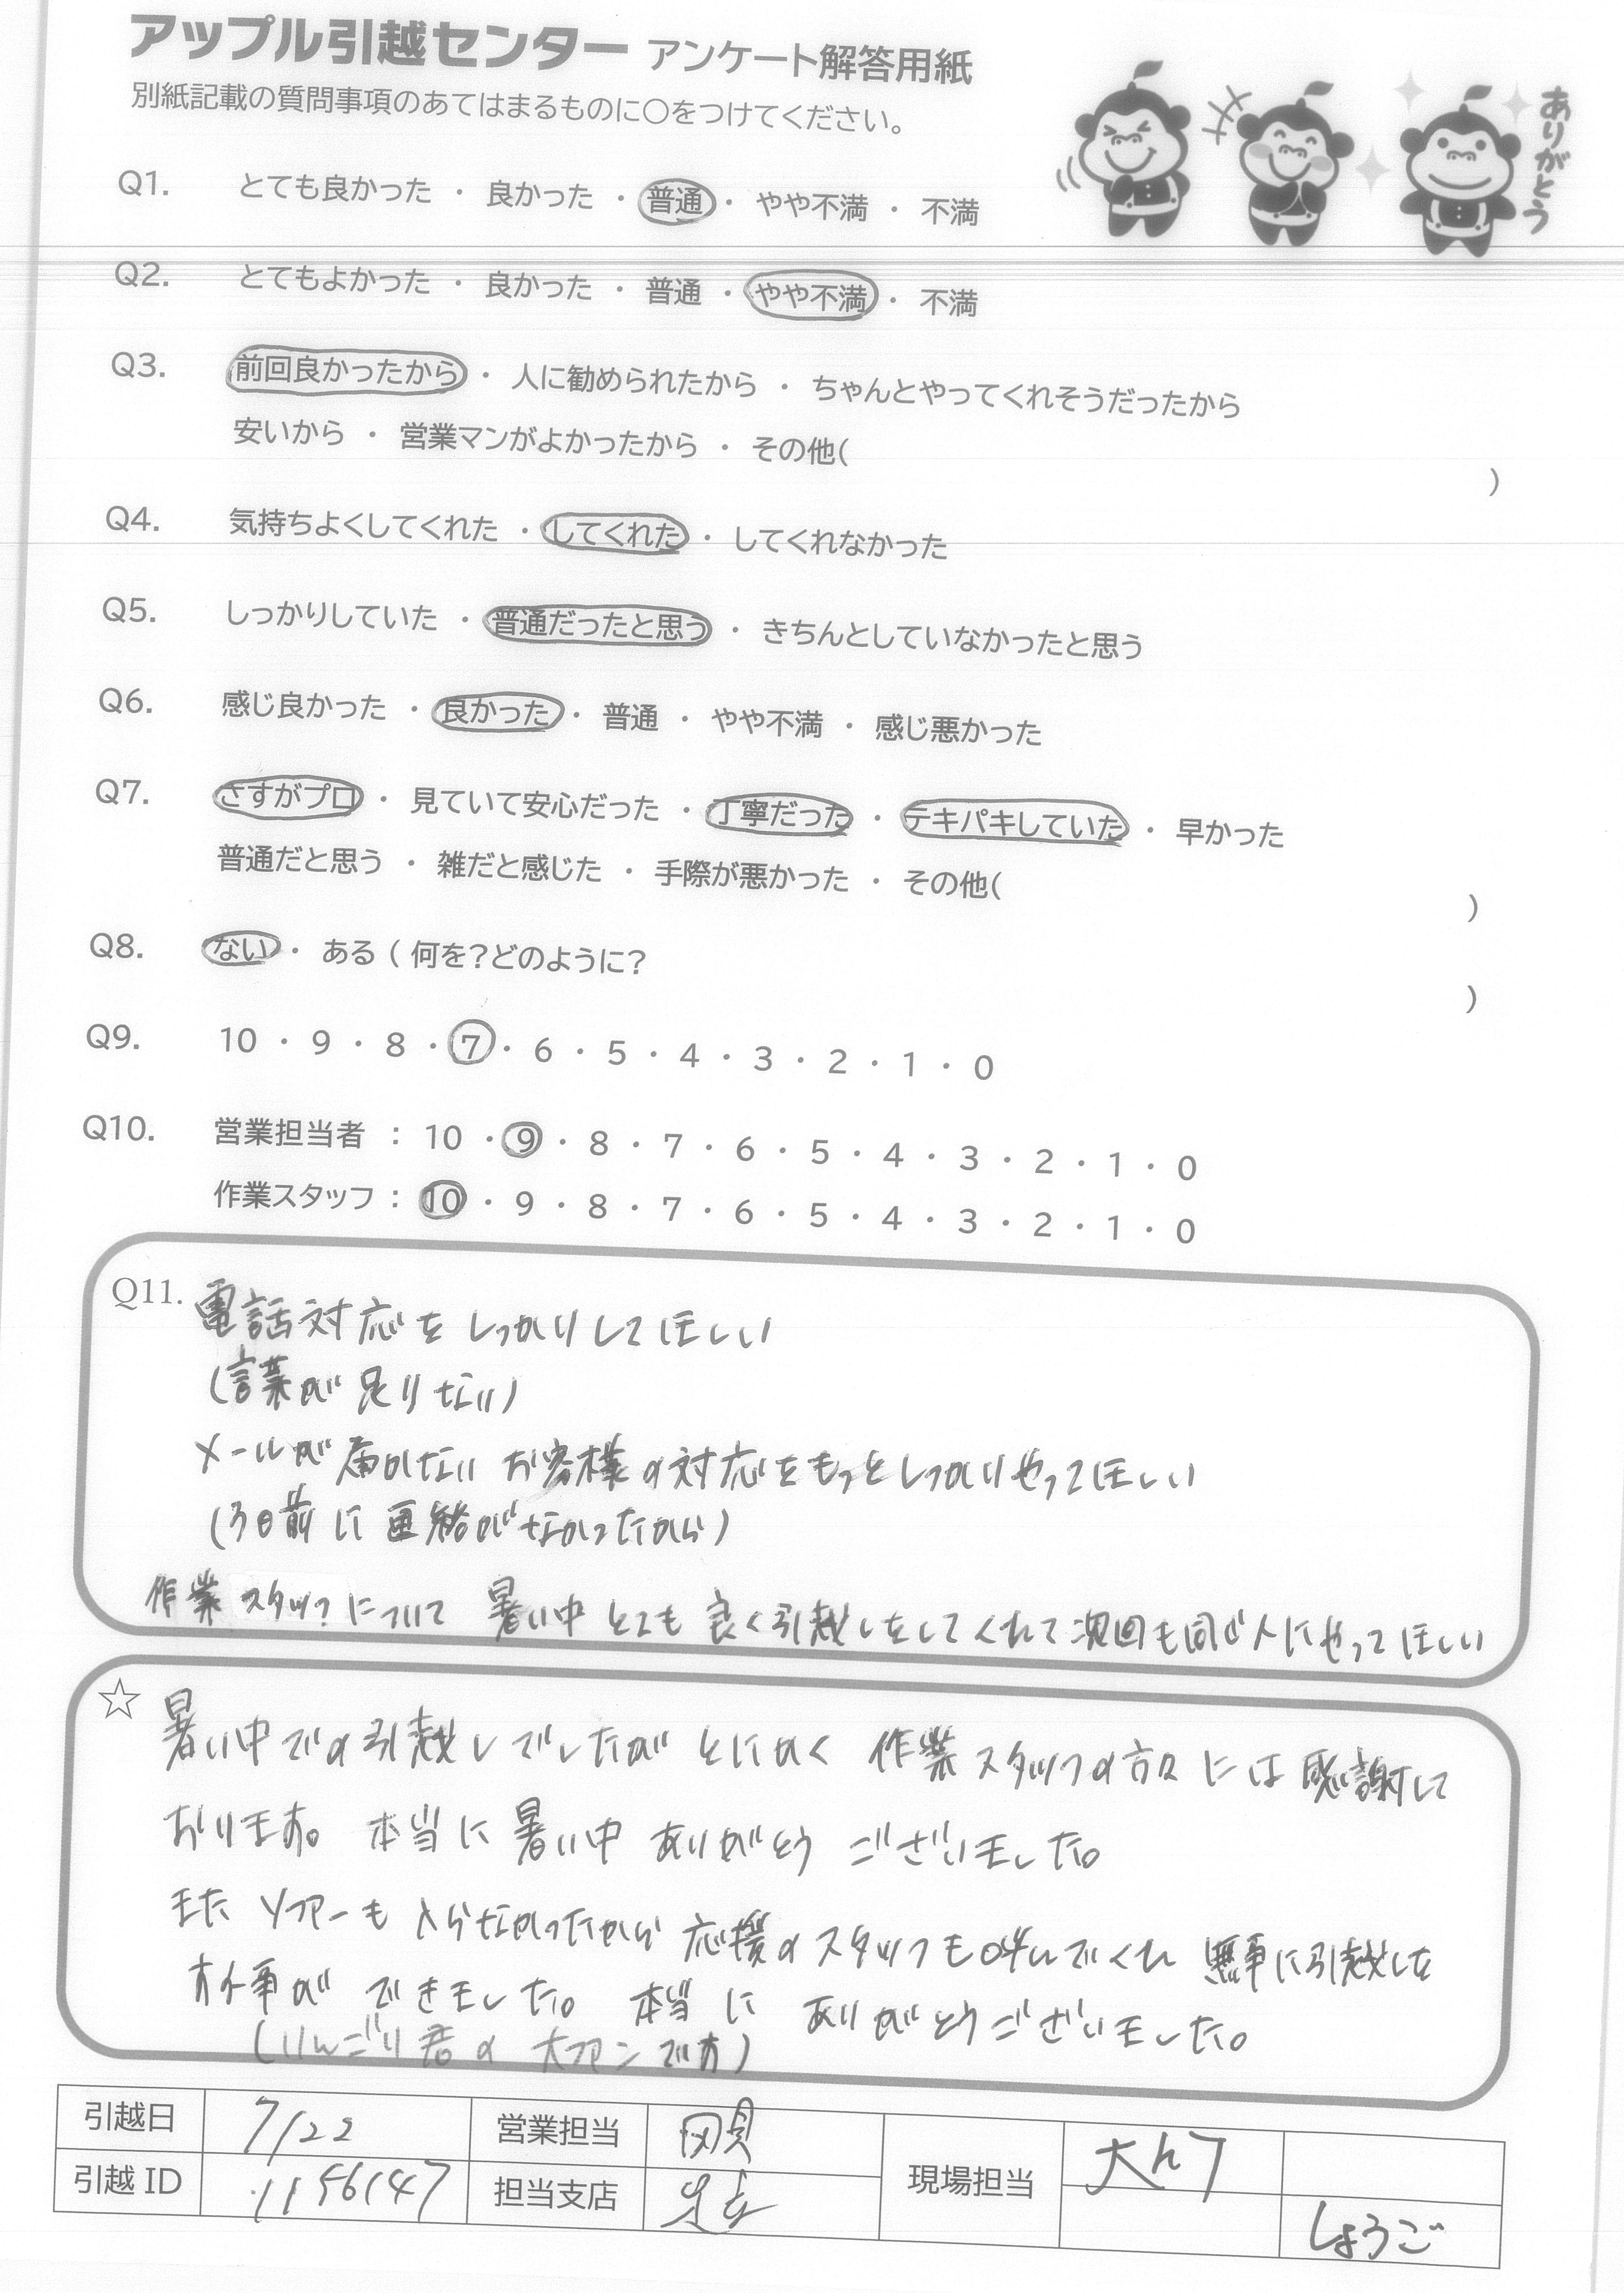 アップル引越センター アンケート解答用紙
別紙記載の質問事項のあてはまるものに○をつけてください。
ありがとう
Q1. とても良かった ・ 良かった ・ 普通 ・ やや不満 ・ 不満
Q2. とてもよかった ・ 良かった ・ 普通 ・ やや不満 ・ 不満
Q3. 前回良かったから ・ 人に勧められたから ・ ちゃんとやってくれそうだったから
安いから ・ 営業マンがよかったから ・ その他( )
Q4. 気持ちよくしてくれた ・ してくれた ・ してくれなかった
Q5. しっかりしていた ・ 普通だったと思う ・ きちんとしていなかったと思う
Q6. 感じ良かった ・ 良かった ・ 普通 ・ やや不満 ・ 感じ悪かった
Q7. さすがプロ ・ 見ていて安心だった ・ 丁寧だった ・ テキパキしていた ・ 早かった
普通だと思う ・ 雑だと感じた ・ 手際が悪かった ・ その他( )
Q8. ない ・ ある ( 何を?どのように? )
Q9. 10 ・ 9 ・ 8 ・ 7 ・ 6 ・ 5 ・ 4 ・ 3 ・ 2 ・ 1 ・ 0
Q10. 営業担当者 : 10 ・ 9 ・ 8 ・ 7 ・ 6 ・ 5 ・ 4 ・ 3 ・ 2 ・ 1 ・ 0
作業スタッフ : 10 ・ 9 ・ 8 ・ 7 ・ 6 ・ 5 ・ 4 ・ 3 ・ 2 ・ 1 ・ 0
Q11. 電話対応をしっかりしてほしい
(言葉が足りない)
メールが届かないお客様の対応をもっとしっかりやってほしい
(3日前に連絡がなかったから)
作業スタッフについて 暑い中とても良く引越しをしてくれて次回も同じ人にやってほしい
☆ 暑い中での引越しでしたがとにかく 作業スタッフの方々には感謝して
おります。本当に暑い中ありがとうございました。
またソファーも入らなかったから応援のスタッフも呼んでくれ 無事に引越しを
する事ができました。本当にありがとうございました。
(りんごり君の大ファンです)
引越日 7/22 営業担当 現場担当
引越ID 1156147 担当支店 しょうご